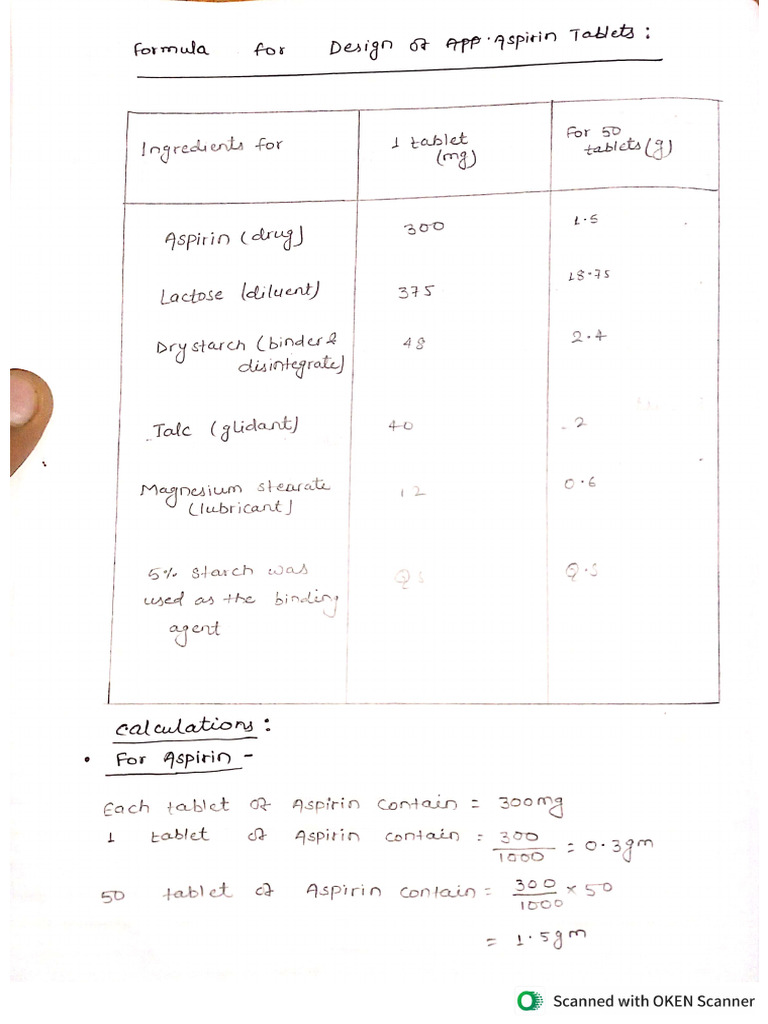 Formula for Design of APP. Aspirin Tablets:
Ingredients for
1 tablet
(mg)
For 50
tablets (g)
Aspirin (drug)
300
1.5
Lactose (diluent)
375
18.75
Dry starch (binder &
disintegrate)
48
2.4
Talc (glidant)
40
2
Magnesium stearate
(lubricant)
12
0.6
5% starch was
used as the binding
agent
QS
Q.S
Calculations:
• For Aspirin -
Each tablet of Aspirin contain = 300mg
1 tablet of Aspirin contain = 300/1000 = 0.3gm
50 tablet of Aspirin contain = 300/1000 × 50
= 1.5gm
Scanned with OKEN Scanner